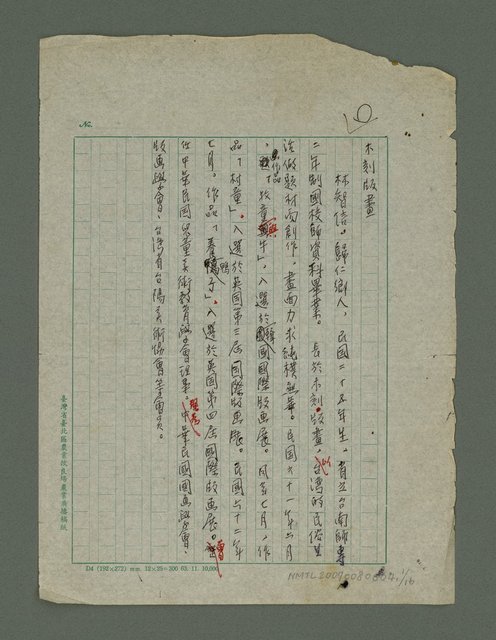 No.
木刻版畫
林智信,歸仁鄉人,民國二十五年生,省立台南師專
二年制國校師資科畢業。長於木刻版畫,以台灣的民俗生
活做題材而創作。畫面力求純樸無華。民國六十一年六月
,作品「牧童與牛」,入選於韓國國際版畫展。同年七月,作
品「村童」,入選於英國第三屆國際版畫展。民國六十三年
七月。作品「養鴨子」,入選於英國第四屆國際版畫展。曾
任中華民國兒童美術教育學會理事。現為中華民國國畫學會、
版畫學會、台灣省台陽美術協會等會員。
臺灣省臺北區農業改良場農業廣播稿紙
D4 (192×272) mm. 12×25=300 63. 11. 10,000
NMTL2009008
1/16